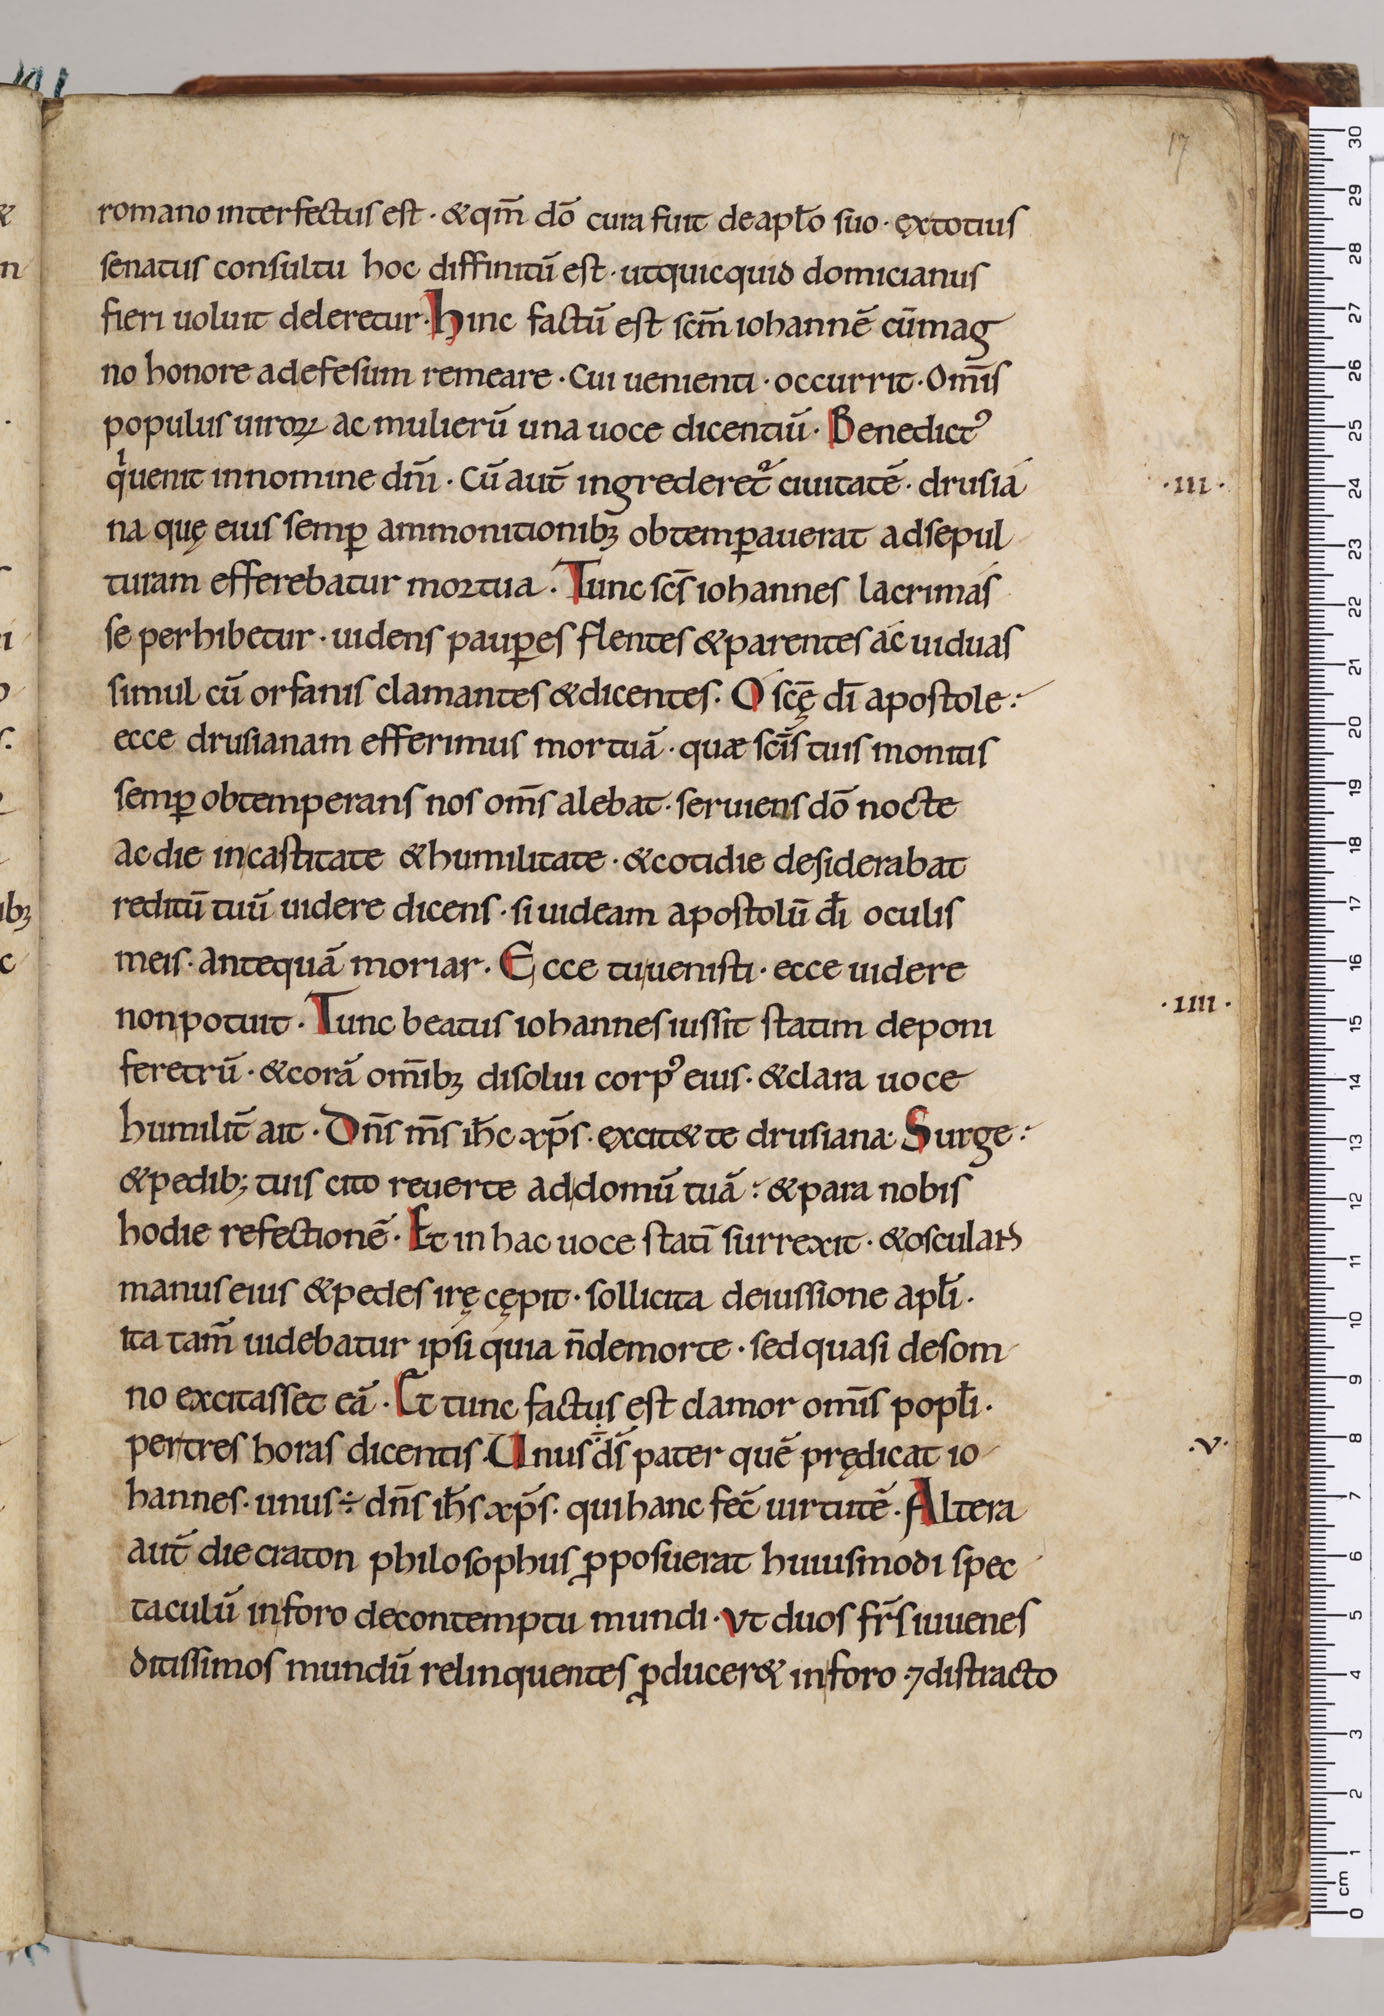 17
romano interfectus est · &qm̄ dō cura fuit deapl̄o suo · ęxtotius
senatus consultu hoc diffinitū est · utquicquid domicianus
fieri uoluit deleretur · Hinc factū est scm̄ iohannē cūmag
no honore adefesum remeare · Cui uenienti · occurrit · Om̄is
populus uiroꝝ ac mulierū una uoce dicentiū · Benedictꝰ
qͥuenit innomine dn̄i · Cū aut̄ ingrederet᷑ ciuitatē · drusia
·III·
na quę eius semꝑ ammonitionibꝫ obtemꝑauerat adsepul
turam efferebatur mortua · Tunc scs̄ iohannes lacrimas
se perhibetur · uidens pauꝑes flentes &parentes ac uiduas
simul cū orfanis clamantes &dicentes · O scę̄ dī apostole :
ecce drusianam efferimus mortuā · quæ scīs tuis monitis
semꝑ obtemperans nos om̄s alebat · seruiens dō nocte
ac die incastitate &humilitate · &cotidie desiderabat
reditū tuū uidere dicens · si uideam apostolū dī oculis
meis · antequā moriar · Ecce tuuenisti · ecce uidere
nonpotuit · Tunc beatus iohannes iussit statim deponi
·IIII·
feretrū · &corā om̄ibꝫ disolui corpꝰ eius · &clara uoce
humilit̄ ait · Dn̄s m̄s ih̄c xp̄s · ęxcit& te drusiana · Surge :
&pedib; tuis cito reuerte addomū tuā : &para nobis
hodie refectionē · Et in hac uoce statī surrexit · &osculans
manus eius &pedes irę cępit · sollicita deiussione apl̄i ·
ita tam̄ uidebatur ipsi quia n̄demorte · sedquasi desom
no excitasset eā · Et tunc factus est clamor om̄is popl̄i ·
pertres horas dicentis · Unus ÷ ds̄ pater quē prędicat io
·V·
hannes · unus ÷ dn̄s ih̄s xp̄s · qui hanc fec̄ uirtutē · Altera
aut̄ die craton philosophus ꝓposuerat huiusmodi spec
taculū inforo decontemptu mundi · Vt duos fr̄s iuuenes
ditissimos mundū relinquentes ꝓducer& inforo · ⁊distracto